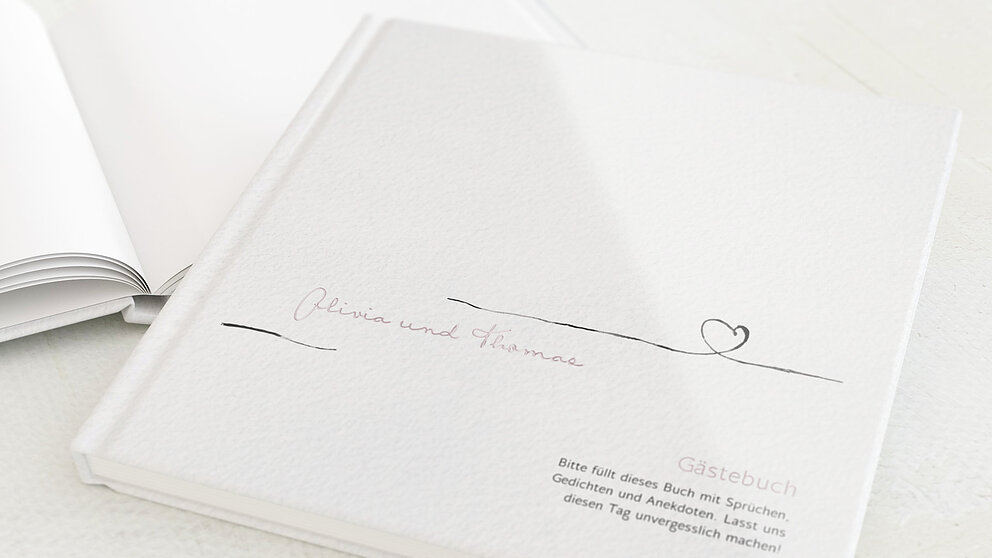 Olivia und Thomas
Gästebuch
Bitte füllt dieses Buch mit Sprüchen,
Gedichten und Anekdoten. Lasst uns
diesen Tag unvergesslich machen!